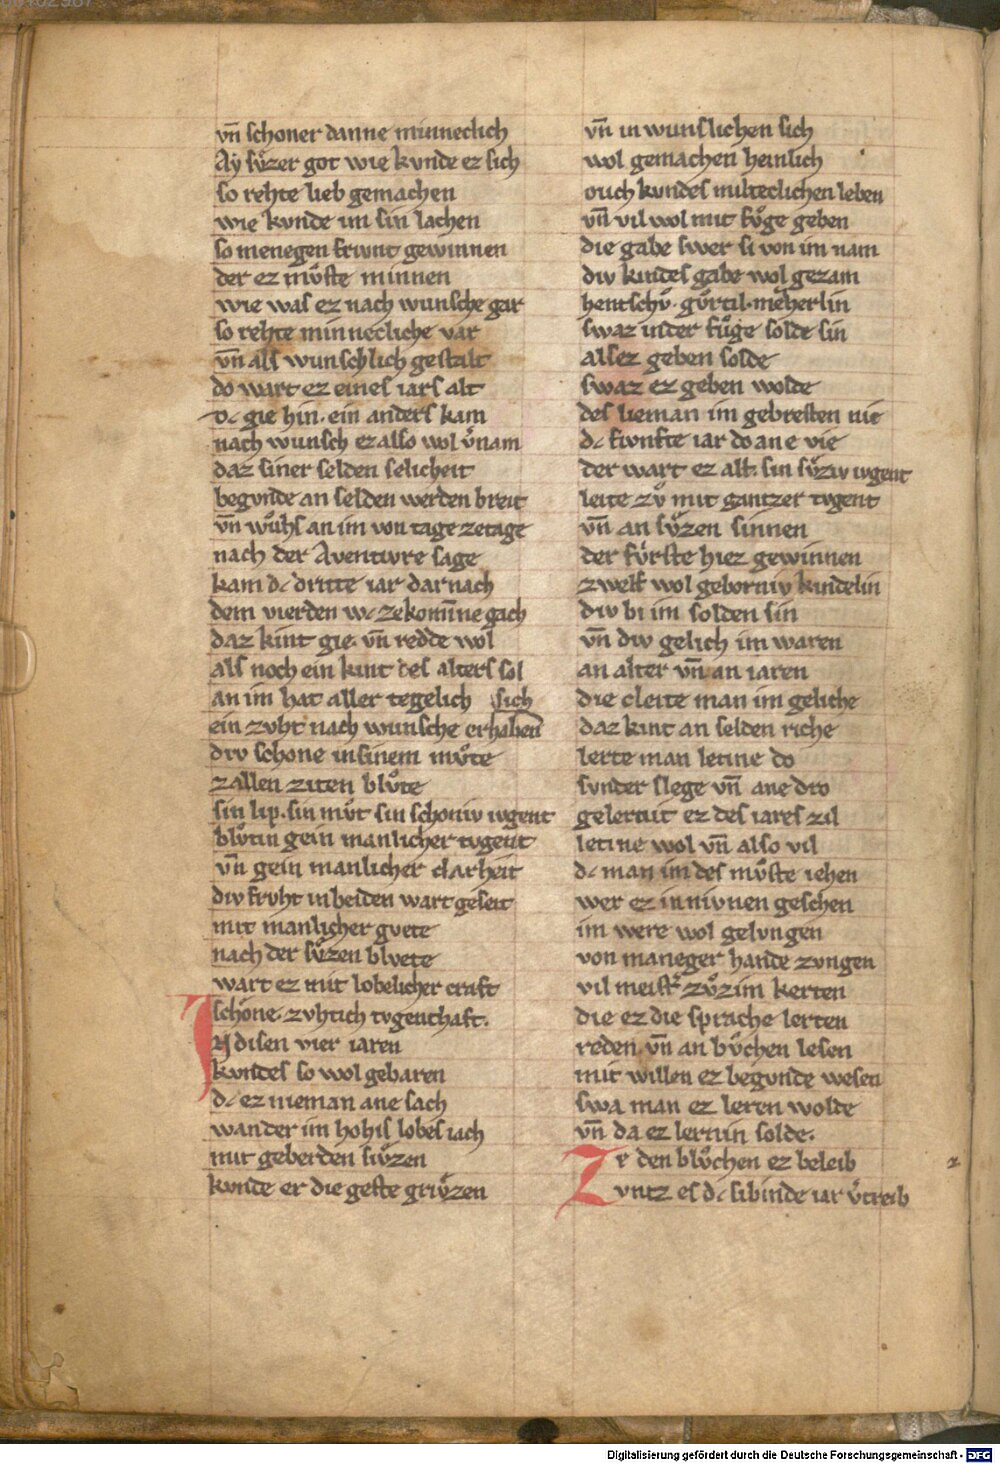 vn̄ schoner danne minneclich
Ay sv̊zer got wie kvnde ez sich
so rehte lieb gemachen
wie kvnde im sin lachen
so menegen frivnt gewinnen
der ez mv̊ste minnen
wie was ez nach wunsche gar
so rehte minnecliche var
vn̄ als wunschlich gestalt
do wart ez eines iars alt
gie hin. ein anders kam
nach wunsch ez also wol v̓nam
daz siner selden selicheit
begvnde an selden werden breit
vn̄ wůhs an im von tage zetage
nach der Aventivre sage
kam dc dritte iar darnach
dem vierden wc zekom̄ne gach
daz kint gie. vn̄ redde wol
als noch ein kint des alters sol
an im hat aller tegelich sich
ein zvht nach wunsche erhaben
div schone in sinem mv̊te
zallen ziten blv̊te
sin lip. sin mv̊t sin schoniv ivgent
blv̊tin gein manlicher tvgent
vn̄ gein manlicher clarheit
div frvht in beiden wart geseit
mit manlicher gvete
nach der sv̊zen blvete
wart ez mit lobelicher craft
schöne. zvhtich tvgenthaft.
IN disen vier iaren
kvndes so wol gebaren
dc ez nieman ane sach
wan der im hohis lobes iach
mit geberden sv̊zen
kvnde er die geste grv̊zen
vn̄ in wunslichen sich
wol gemachen heinlich
ouch kvndes milteclichen leben
vn̄ vil wol mit fv̊ge geben
die gabe swer si von im nam
div kindes gabe wol gezam
hentschv̊. gv̊rtil. meherlin
swaz in der fv̊ge solde sin
allez geben solde
swaz ez geben wolde
des lieman im gebresten nie
dc fivnfte iar do ane vie
der wart ez alt. sin sv̊ziv ivgent
leite zv̊ mit gantzer tvgent
vn̄ an sv̊zen sinnen
der fv̊rste hiez gewinnen
zwelf wol geborniv kindelin
div bi im solden sin
vn̄ div gelich im waren
an alter vn̄ an iaren
die cleite man im geliche
daz kint an selden riche
lerte man letine do
svnder slege vn̄ ane dro
gelernit ez des iares zil
letine wol vn̄ also vil
dc man im des mv̊ste iehen
wer ez in nivnen geschen
im were wol gelvngen
von maneger hande zvngen
vil meist̓ zv̊zim kerten
die ez die sprache lerten
reden vn̄ an bv̊chen lesen
mit willen ez begvnde wesen
swa man ez leren wolde
vn̄ da ez lernin solde.
Zr den blv̊chen ez beleib
vntz es dc sibinde iar v̓treib
Digitalisierung gefördert durch die Deutsche Forschungsgemeinschaft - DFG